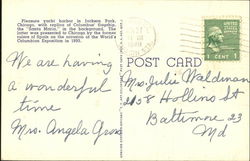 Pleasure yacht harbor in Jackson Park,
Chicago, with replica of Columbus' flagship,
the "Santa Maria," in the background. The
latter was presented to Chicago by the former
rulers of Spain on the occasion of the World's
Columbian Exposition in 1893.
We are having
a wonderful
time
Mrs. Angela Gross
POST CARD
Mrs. Julie Waldman
2158 Hollins St
Baltimore 23
Md
1 CENT 1